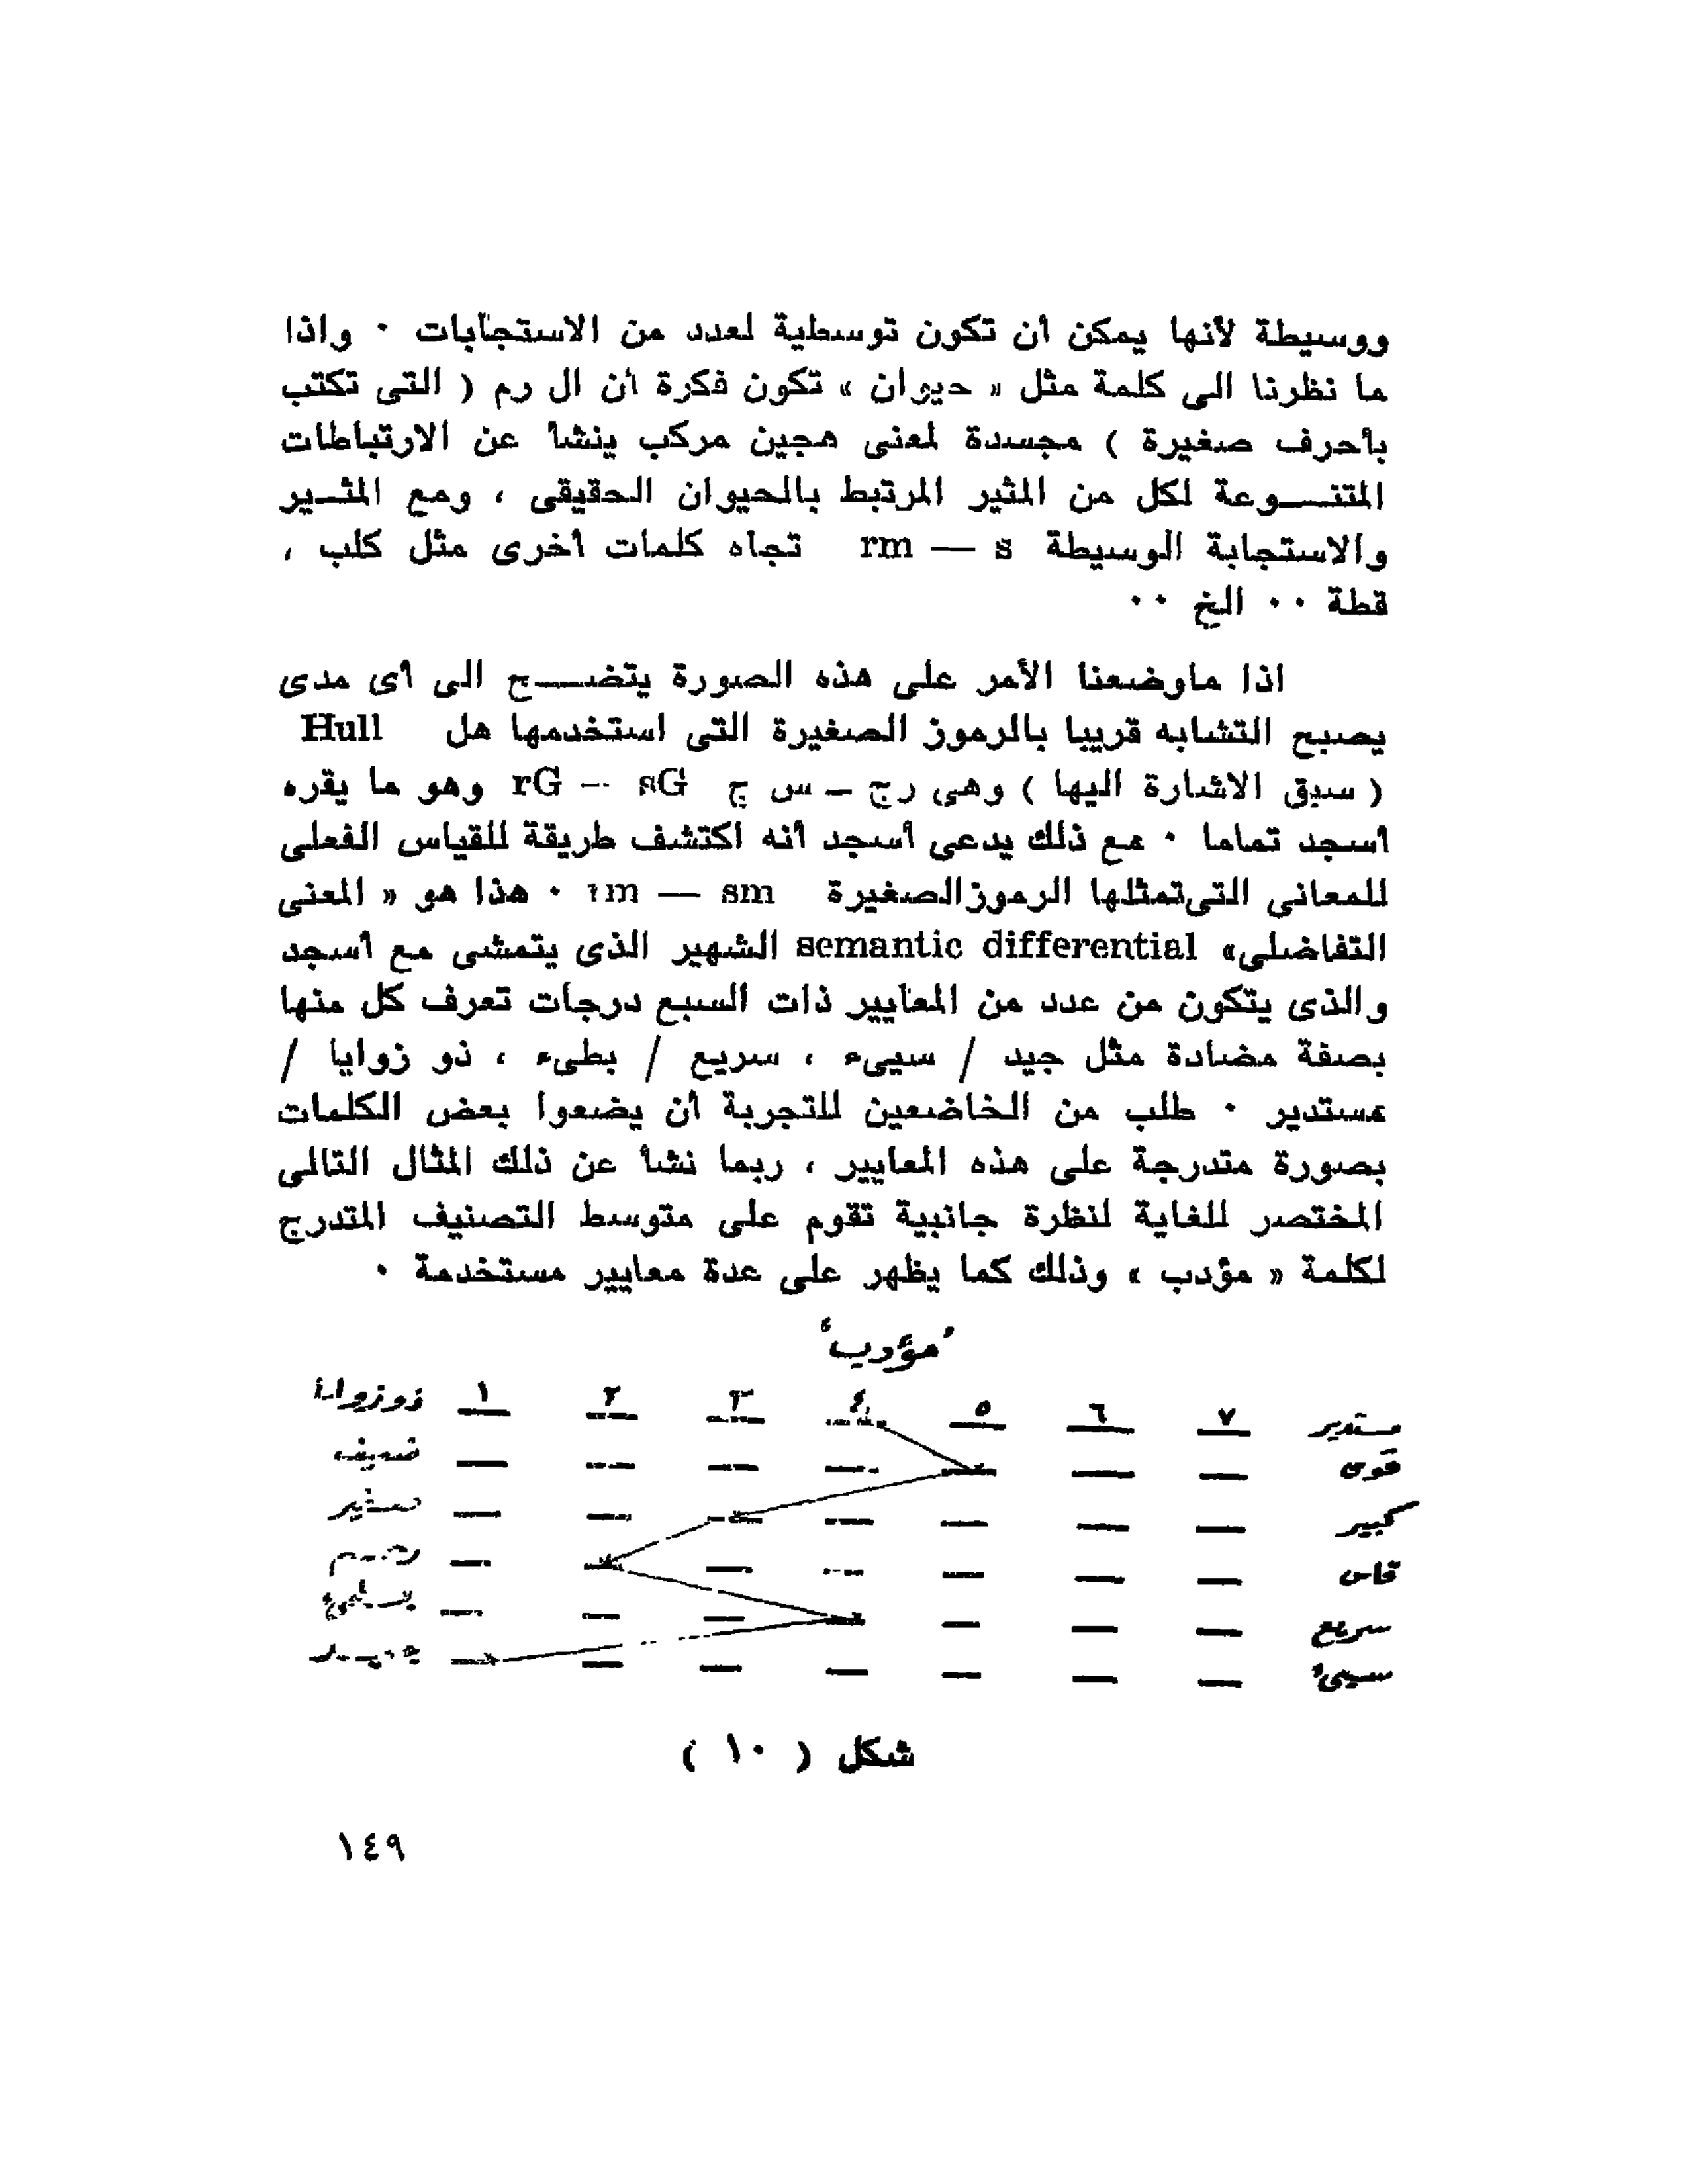 ووسيطة لأنها يمكن أن تكون توسطية لعدد من الاستجابات ٠ واذا
ما نظرنا الى كلمة مثل « حيوان » تكون فكرة أن ال رم ( التى تكتب
بأحرف صغيرة ) مجسدة لمعنى هجين مركب ينشأ عن الارتباطات
المتنـــوعة لكل من المثير المرتبط بالحيوان الحقيقى ، ومع المثـير
والاستجابة الوسيطة rm — s تجاه كلمات أخرى مثل كلب ،
قطة ٠٠ الخ ٠٠
اذا ماوضعنا الأمر على هذه الصورة يتضـــح الى أى مدى
يصبح التشابه قريبا بالرموز الصغيرة التى استخدمها هل Hull
( سبق الاشارة اليها ) وهى رج – س ج rG — sG وهو ما يقره
أسجد تماما ٠ مع ذلك يدعى أسجد أنه اكتشف طريقة للقياس الفعلى
للمعانى التى تمثلها الرموز الصغيرة rm — sm ٠ هذا هو « المعنى
التفاضلى» semantic differential الشهير الذى يتمشى مع أسجد
والذى يتكون من عدد من المعايير ذات السبع درجات تعرف كل منها
بصفة مضادة مثل جيد / سيىء ، سريع / بطىء ، ذو زوايا /
مستدير ٠ طلب من الخاضعين للتجربة أن يضعوا بعض الكلمات
بصورة متدرجة على هذه المعايير ، ربما نشأ عن ذلك المثال التالى
المختصر للغاية لنظرة جانبية تقوم على متوسط التصنيف المتدرج
لكلمة « مؤدب » وذلك كما يظهر على عدة معايير مستخدمة ٠
'مؤدب'
مستدير ٧ ٦ ٥ ٤ ٣ ٢ ١ ذو زوايا
قوى ضعيف
كبير صغير
قاس
سريع
سيىء
شكل ( ١٠ )
١٤٩